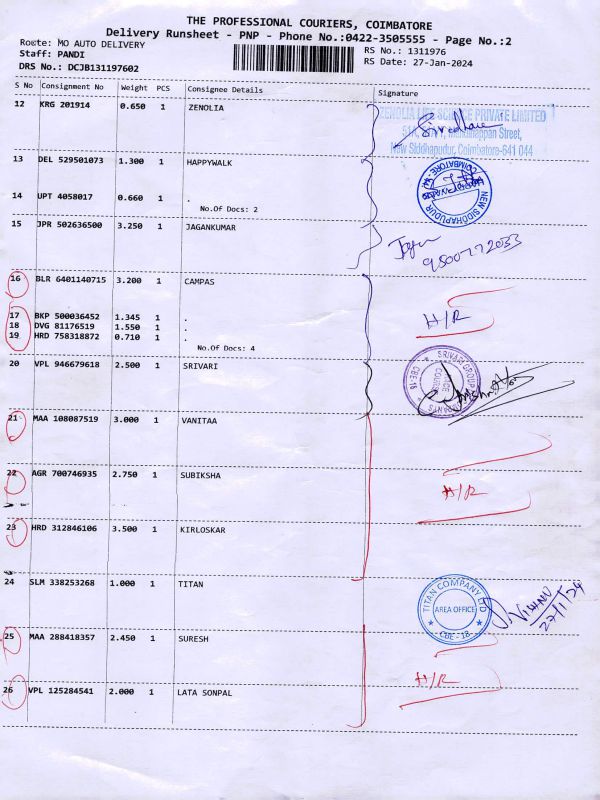 THE PROFESSIONAL COURIERS, COIMBATORE
Delivery Runsheet - PNP - Phone No.:0422-3505555 - Page No.:2
Route: MO AUTO DELIVERY RS No.: 1311976
Staff: PANDI RS Date: 27-Jan-2024
DRS No.: DCJB131197602
S No Consignment No Weight PCS Consignee Details Signature
12 KRG 201914 0.650 1 ZENOLIA
ZENOLIA LIFE SCIENCE PRIVATE LIMITED
Street,
New Siddhapudur, Coimbatore-641 044
13 DEL 529501073 1.300 1 HAPPYWALK
NEW SIDDHAPUDUR
14 UPT 4058017 0.660 1 .
No.Of Docs: 2
15 JPR 502636500 3.250 1 JAGANKUMAR
9500772033
16 BLR 6401140715 3.200 1 CAMPAS
17 BKP 500036452 1.345 1 .
18 DVG 81176519 1.550 1 .
19 HRD 758318872 0.710 1 .
H/R
No.Of Docs: 4
20 VPL 946679618 2.500 1 SRIVARI
SRIVARI GROUP
CBE-18
21 MAA 108087519 3.000 1 VANITAA
22 AGR 700746935 2.750 1 SUBIKSHA
H/R
23 HRD 312846106 3.500 1 KIRLOSKAR
24 SLM 338253268 1.000 1 TITAN
TITAN COMPANY LTD
AREA OFFICE
CBE - 18
27/1/24
25 MAA 288418357 2.450 1 SURESH
H/R
26 VPL 125284541 2.000 1 LATA SONPAL